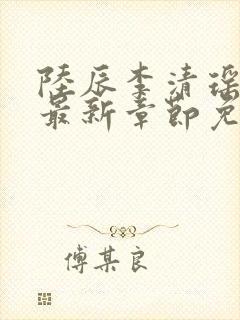 陸辰李清瑶
最新章節免
傅某良